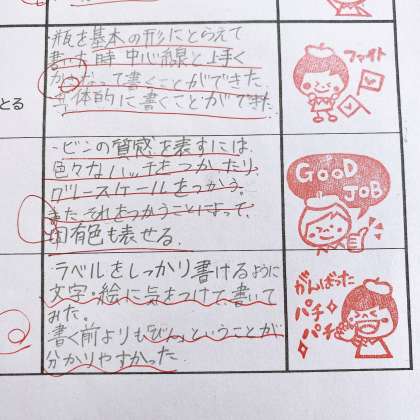 ・瓶を基本の形にとらえて
書いた時中心線と上手く
つかって書くことができた。
立体的に書くことができた
とる
ファイト
・ビンの質感を表すには、
色々なハッチをつかったり、
グレースケールをつかう。
またそれをつかうことによって、
固有色も表せる。
GOOD
JOB
・ラベルをしっかり書けるように
文字・絵に気をつけて書いて
みた。
書く前よりも「びん」ということが
分かりやすかった
がんばった
パチ
パチ